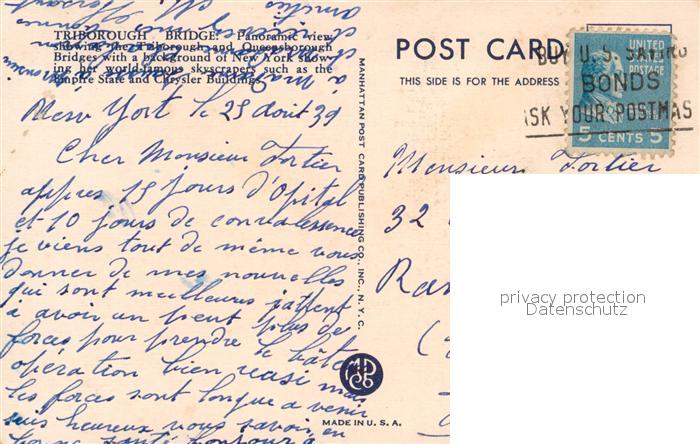 TRIBOROUGH BRIDGE: Panoramic view
showing the Triborough and Queensborough
Bridges with a background of New York show-
ing her world-famous skyscrapers such as the
Empire State and Chrysler Buildings.
New York le 25 Aout 39
Cher Monsieur Fortier
appres 15 jours d'Opital
et 10 jours de convalessence
je viens tout de même vous
donner de mes nouvelles
qui sont meilleures j'attent
à avoir un peut plus de
forces pour prendre le bâteau
opération bien reusi mais
les forces sont longue a venir
suis heureux vous savoir en
bonne santé bonjour a
MANHATTAN POST CARD PUBLISHING CO., INC., N. Y. C.
MADE IN U. S. A.
POST CARD
THIS SIDE IS FOR THE ADDRESS
UNITED
POSTAGE
5 CENTS 5
BUY U. S. SAVING
BONDS
ASK YOUR POSTMAS
Monsieur Fortier
32
Ran
privacy protection
Datenschutz